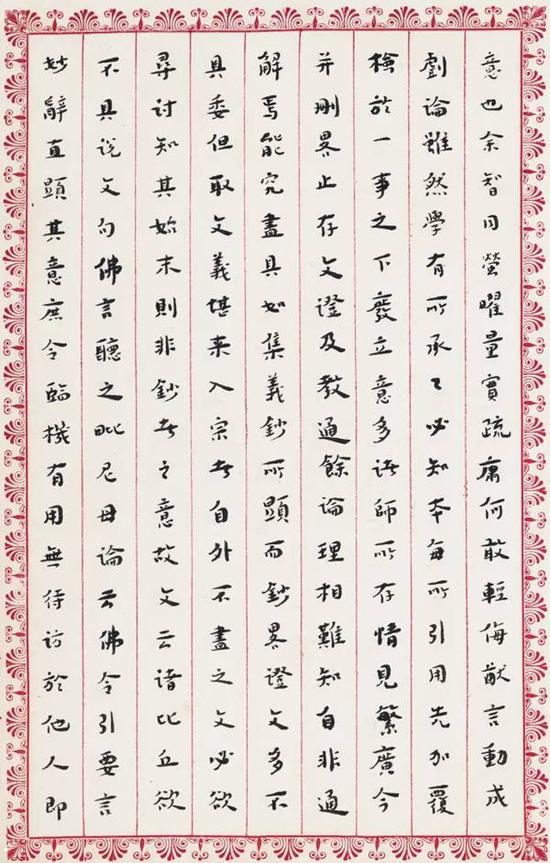 意也余智同螢曜量實疏庸何敢輕侮猷言動成
劇論雖然學有所承〻必知本每所引用先加覆
檢於一事之下廢立意多諸師所存情見繁廣今
并刪畧止存文證及教通餘論理相難知自非通
解焉能究盡具如集義鈔所顯而鈔畧證文多不
具委但取文義堪来入宗者自外不盡之文必欲
尋討知其始末則非鈔者之意故文云諸比丘欲
不具說文句佛言聽之毗尼母論云佛令引要言
妙辭直顯其意庶令臨機有用無待訪於他人即